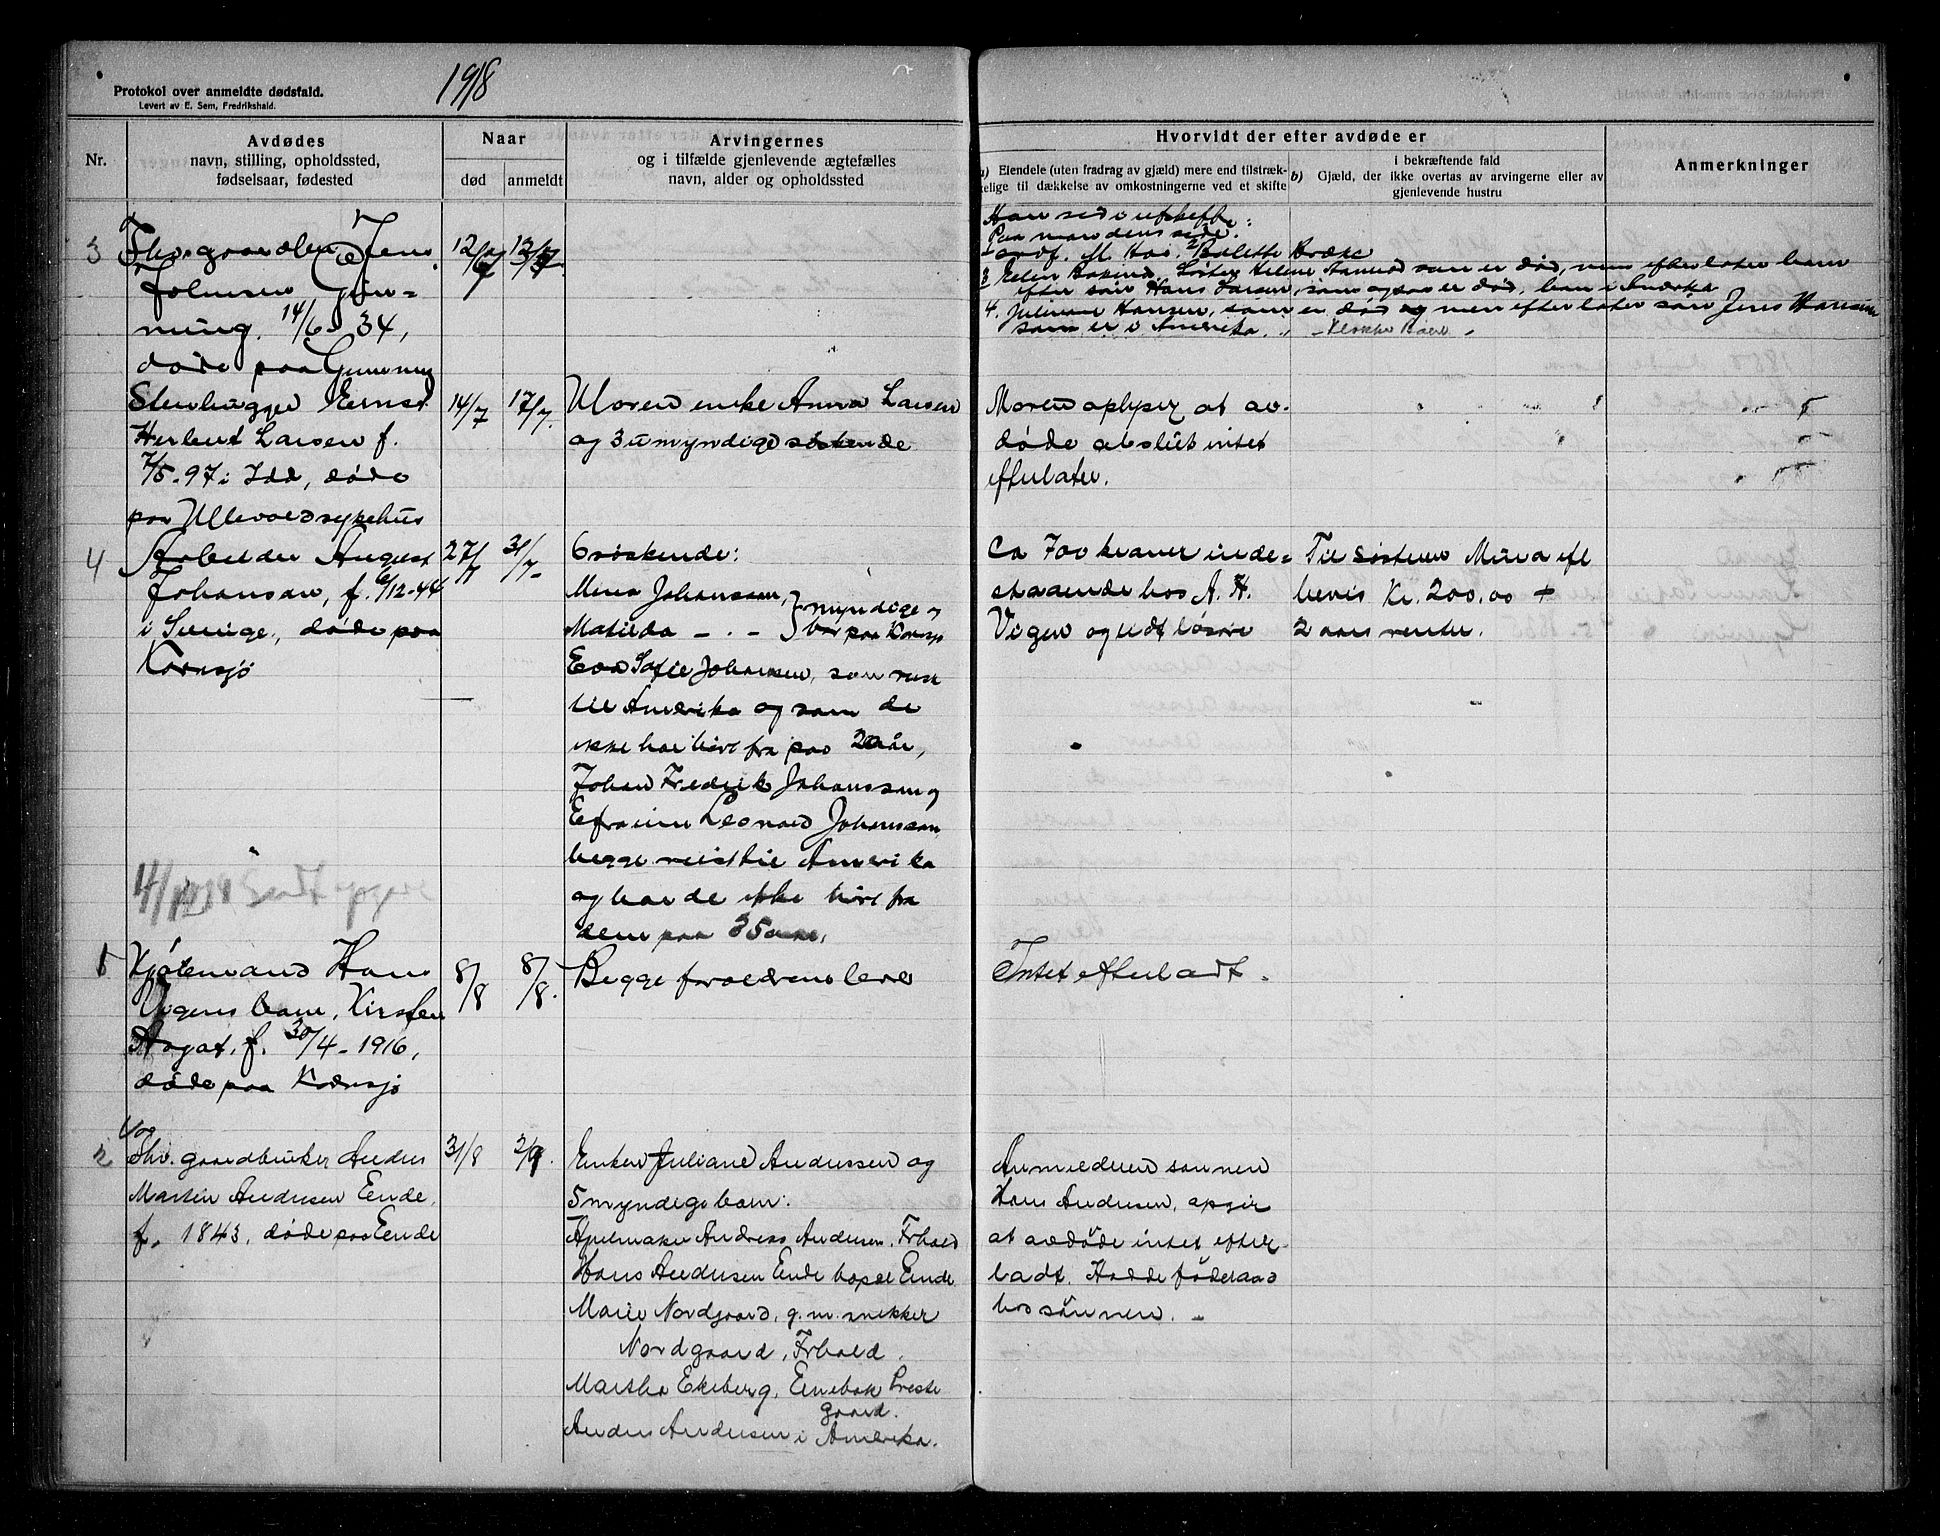 Protokol over anmeldte dødsfald.
Levert av E. Sem, Fredrikshald.
1918
Nr.
Avdødes
navn, stilling, opholdssted,
fødselsaar, fødested
Naar
død
anmeldt
Arvingernes
og i tilfælde gjenlevende ægtefælles
navn, alder og opholdssted
Hvorvidt der efter avdøde er
a) Eiendele (uten fradrag av gjæld) mere end tilstræk-
kelige til dækkelse av omkostningerne ved et skifte
i bekræftende fald
b) Gjæld, der ikke overtas av arvingerne eller av
gjenlevende hustru
Anmerkninger
3
Jens
Johnsen
14/6 34,
døde paa
12/7
Paa mandens side:
2 Bolette Bræke
som er død, men efterlater barn
efter sön Hans Larsen, som ogsaa er død, barn i Amerika
4. Juliane Hansen, som er død og men efterlater sön Jens Hansen
som er i Amerika.
Stenhugger Ernst
Herbert Larsen f.
7/5-97 i Idd, døde
paa Ullevold sykehus
14/7
17/7.
Moren enke Anna Larsen
og 3 umyndige søskende
Moren oplyser at av-
døde absolut intet
efterlater.
4
Arbeider August
Johansen, f. 6/12-44
i Sverige, døde paa
Kornsjø
27/7
31/7-
6 søskende:
Mina Johanssen,
Matilda - . -
myndige,
bor paa Kornsjø
Eva Sofie Johansen, som reist
til Amerika og som de
ikke har hört fra paa 20 år,
Johan Fredrik Johanssen og
Efraim Leonard Johanssen
begge reist til Amerika
og har de ikke hört fra
dem paa 35 aar.
Ca 700 kroner inde-
staaende hos A. H.
Vogen og lidt lösöre
Til søsteren Mina efl
bevis Kr. 200,00 +
2 aars renter.
5
Kjøbmand Hans
Vogens barn, Kirsten
Aagot. f. 30/4-1916,
døde paa Kornsjø
8/8
8/8.
Begge forældrene lever
Intet efterladt.
2
fhv. gaardbruker Anders
Martin Andersen Ende,
f. 1843, døde paa Ende
31/8
2/9
Enken Juliane Andersen og
5 myndige barn:
Hjulmaker Andreas Andersen, Frhald
Hans Andersen Ende bopæl Ende
Marie Nordgaard, g.m. snekker
Nordgaard, Frhald.
Martha Ekeberg, Enebak Preste
gaard.
Anders Andersen i Amerika.
Anmelderen sønnen
Hans Andersen, opgir
at avdöde intet efter-
ladt. Hadde föderaad
hos sönnen. -